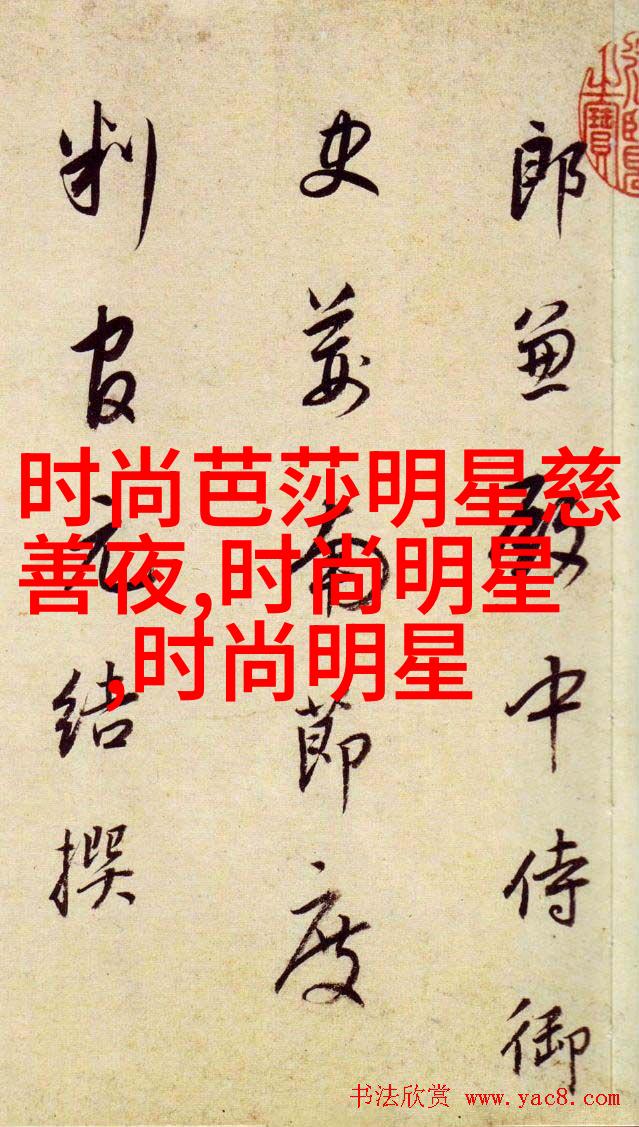 郎兼殿中侍御
史荊南節度
判官元結撰
时尚芭莎明星慈
善夜,时尚明星
,时尚明星
书法欣赏 www.yac8.com